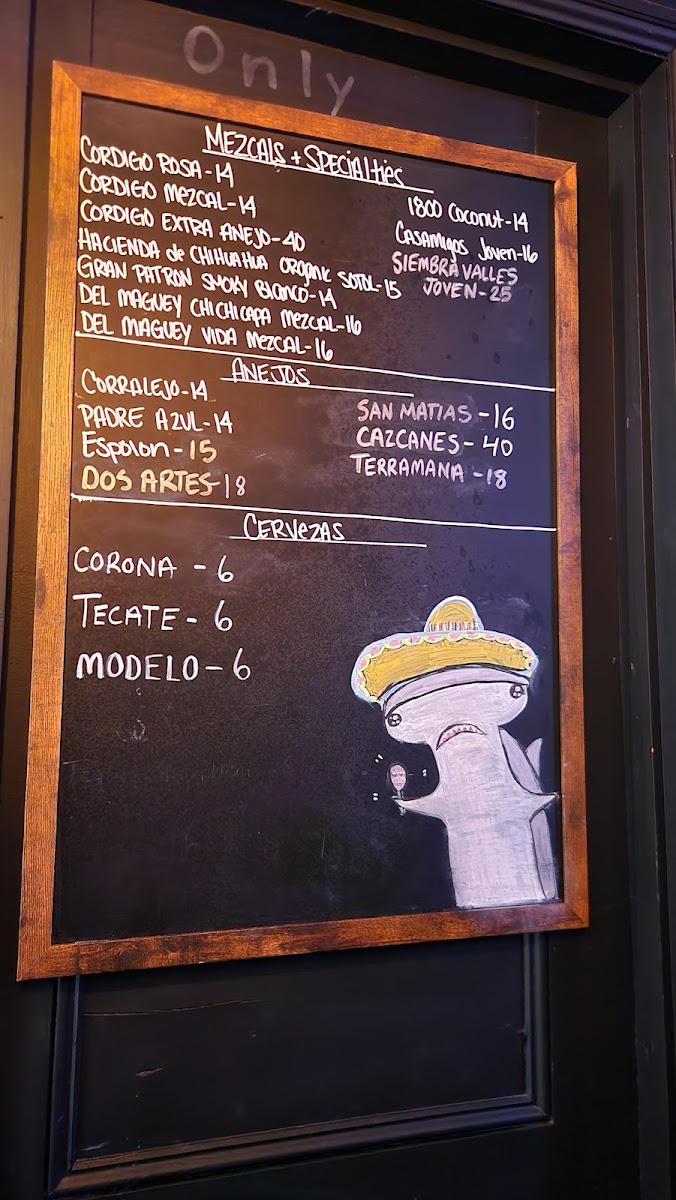 Only
MEZCALS + SPECIALTIES
CORDIGO ROSA-14
CORDIGO MEZCAL-14
CORDIGO EXTRA ANEJO-40
HACIENDA de CHIHUAHUA ORGANIC SOTOL-15
GRAN PATRON SMOKY BLANCO-14
DEL MAGUEY CHICHICAPA MEZCAL-16
DEL MAGUEY VIDA MEZCAL-16
1800 COCONUT-14
CASAMIGOS JOVEN-16
SIEMBRA VALLES
JOVEN-25
ANEJOS
CORRALEJO-14
PADRE AZUL-14
Espolon-15
DOS ARTES-18
SAN MATIAS-16
CAZCANES-40
TERRAMANA-18
CERVEZAS
CORONA-6
TECATE-6
MODELO-6